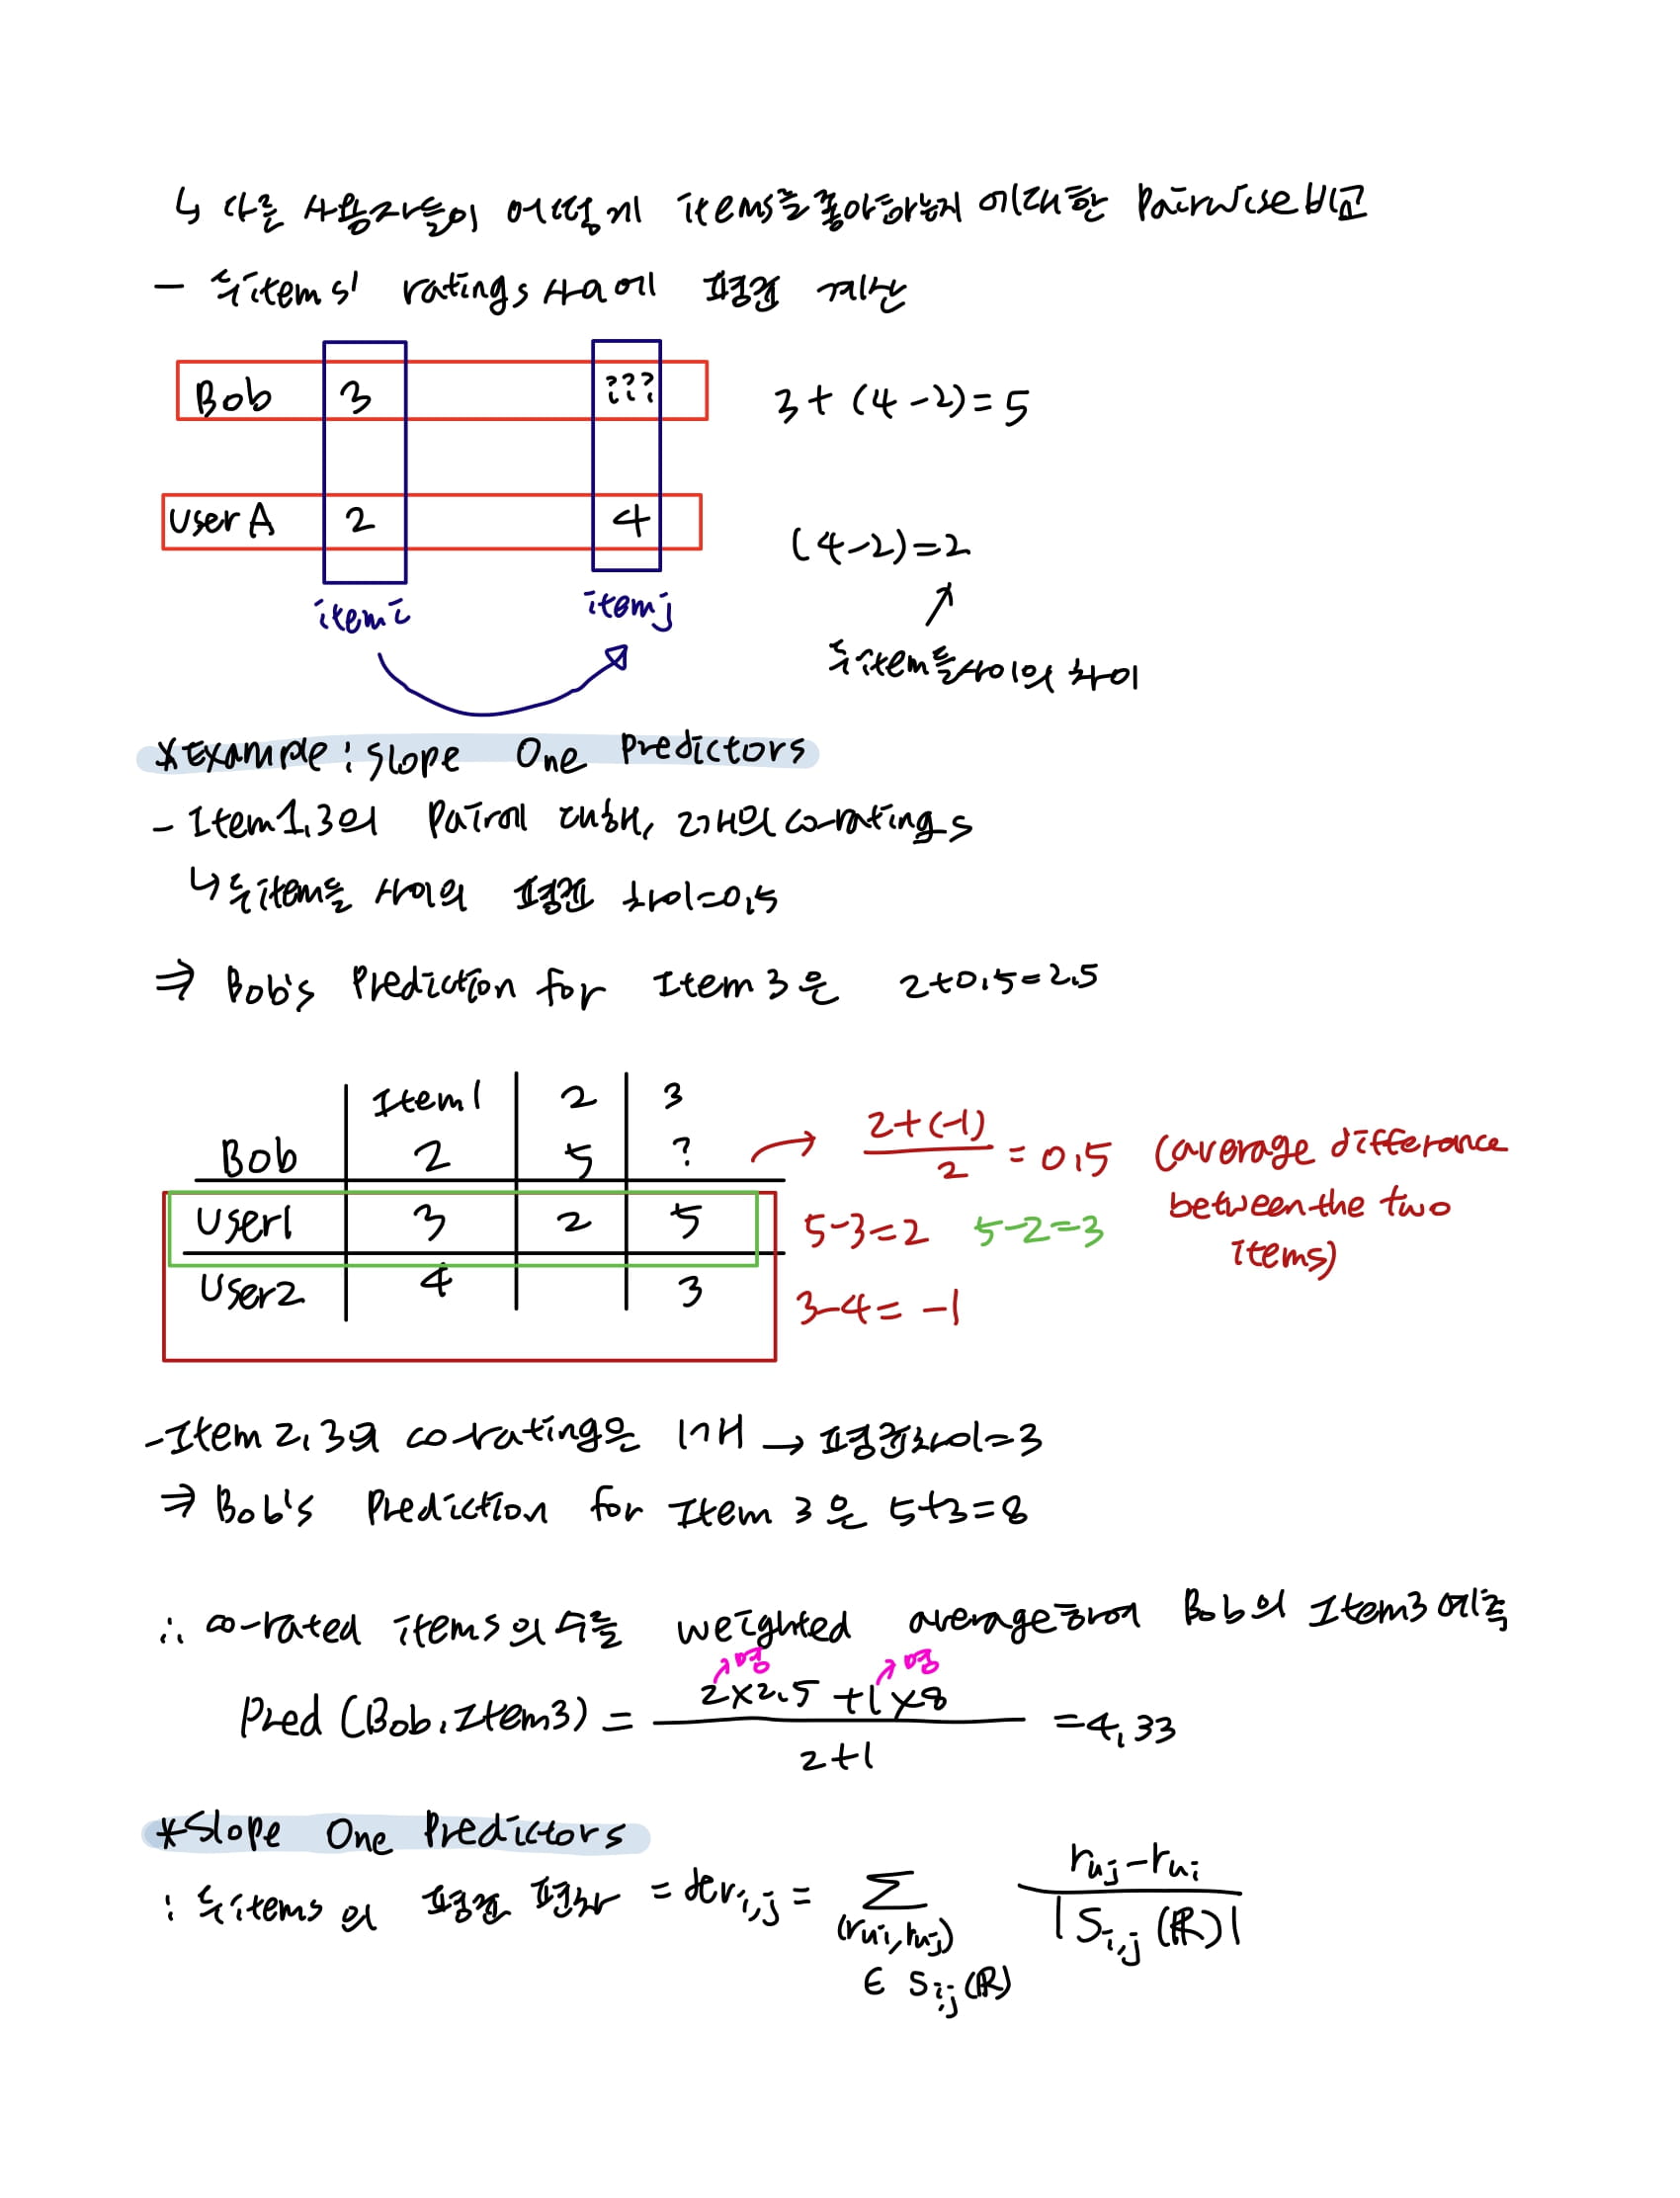 ↳ 다른 사용자들이 어떻게 items를 좋아하는지에 대한 Pairwise 비교
- 두 items' ratings 사이에 평균 계산
Bob 3 ???
3 + (4-2) = 5
User A 2 4
(4-2) = 2
item i item j
두 item들 사이의 차이
*Example : Slope One Predictors
- Item 1, 3의 Pair에 대해, 2개의 co-ratings
↳ 두 item들 사이의 평균 차이 = 0.5
⇒ Bob's Prediction for Item 3은 2+0.5=2.5
Item1 2 3
Bob 2 5 ?
→ (2+(-1))/2 = 0.5 (average difference between the two items)
User1 3 2 5
5-3=2 5-2=3
User2 4 3
3-4= -1
- Item 2, 3의 co-rating은 1개 → 평균차이=3
⇒ Bob's Prediction for Item 3은 5+3=8
∴ co-rated items의 수를 weighted average하여 Bob의 Item3 예측
명 명
Pred (Bob, Item3) = (2×2.5 + 1×8)/(2+1) = 4.33
*Slope One Predictors
: 두 items의 평균 편차 = dev i,j = Σ (rui, ruj) ∈ Si,j(R) (ruj - rui)/|Si,j(R)|